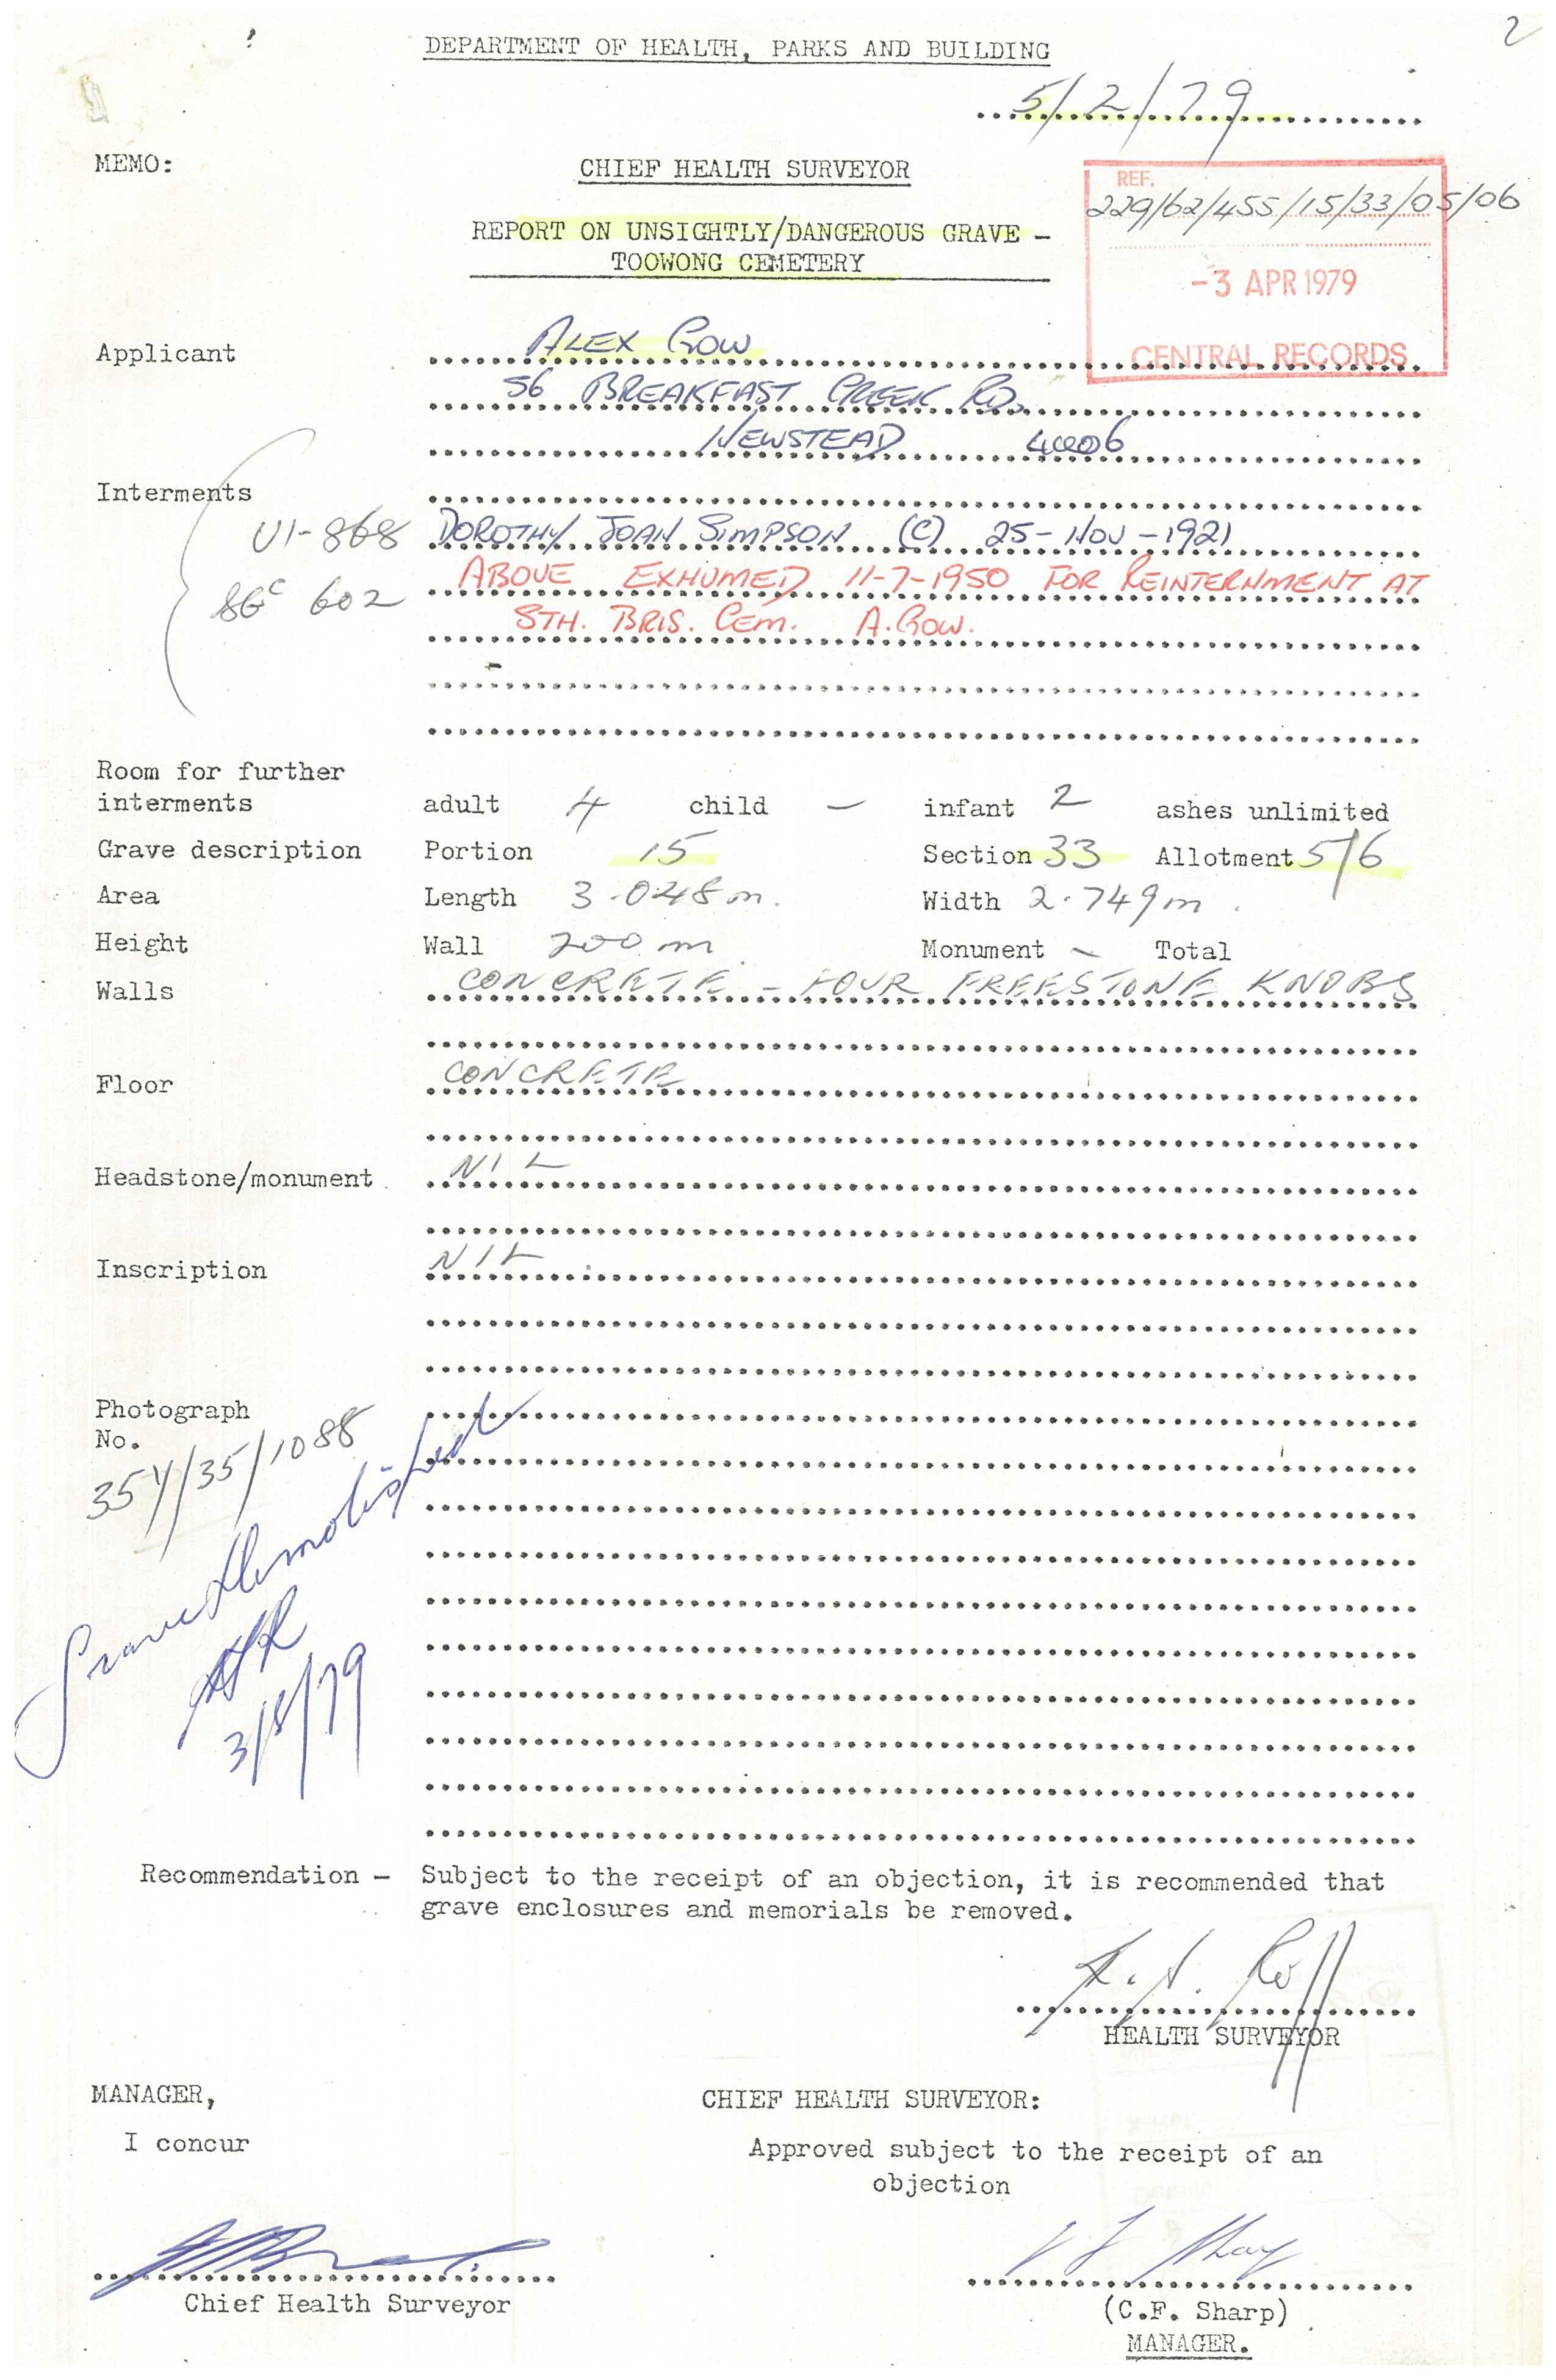 2
DEPARTMENT OF HEALTH, PARKS AND BUILDING
5/2/79
MEMO:
CHIEF HEALTH SURVEYOR
REF.
229/62/455/15/33/05/06
REPORT ON UNSIGHTLY/DANGEROUS GRAVE –
TOOWONG CEMETERY
-3 APR 1979
CENTRAL RECORDS
Applicant ALEX GOW
56 BREAKFAST CREEK RD.
NEWSTEAD 4006
Interments
U1-868 DOROTHY JOAN SIMPSON (C) 25-NOV-1921
ABOVE EXHUMED 11-7-1950 FOR REINTERNMENT AT
602 STH. BRIS. CEM. A. GOW.
Room for further
interments adult 4 child – infant 2 ashes unlimited
Grave description Portion 15 Section 33 Allotment 5/6
Area Length 3.048m. Width 2.749m.
Height Wall 200 m Monument – Total
Walls CONCRETE – FOUR FREESTONE KNOBS
Floor CONCRETE
Headstone/monument NIL
Inscription NIL
Photograph
No.
354/35/1088
Grave demolished
3/8/79
Recommendation – Subject to the receipt of an objection, it is recommended that
grave enclosures and memorials be removed.
HEALTH SURVEYOR
MANAGER,
CHIEF HEALTH SURVEYOR:
I concur
Approved subject to the receipt of an
objection
Chief Health Surveyor
(C.F. Sharp)
MANAGER.